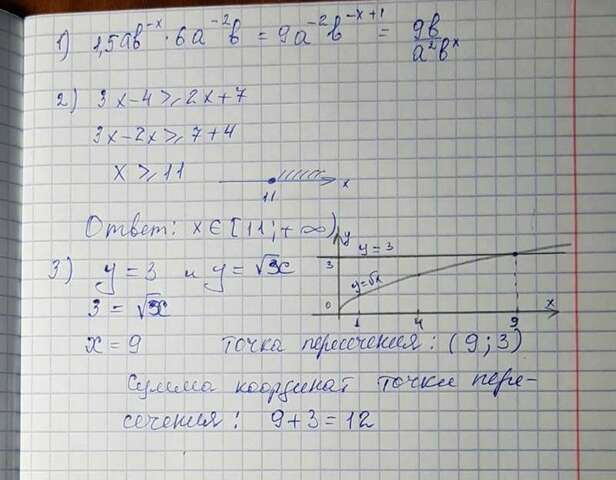 1) 1,5ab⁻ˣ · 6a⁻²b = 9a⁻²b⁻ˣ⁺¹ = 9b/a²bˣ
2) 3x-4 ⩾ 2x+7
3x-2x ⩾ 7+4
x ⩾ 11
11 x
Ответ: x ∈ [11; +∞)
3) y = 3 и y = √x
3 = √x
x = 9
y
y = 3
3
y=√x
0 1 4 9 x
точка пересечения: (9; 3)
Сумма координат точки пере-
сечения: 9+3=12